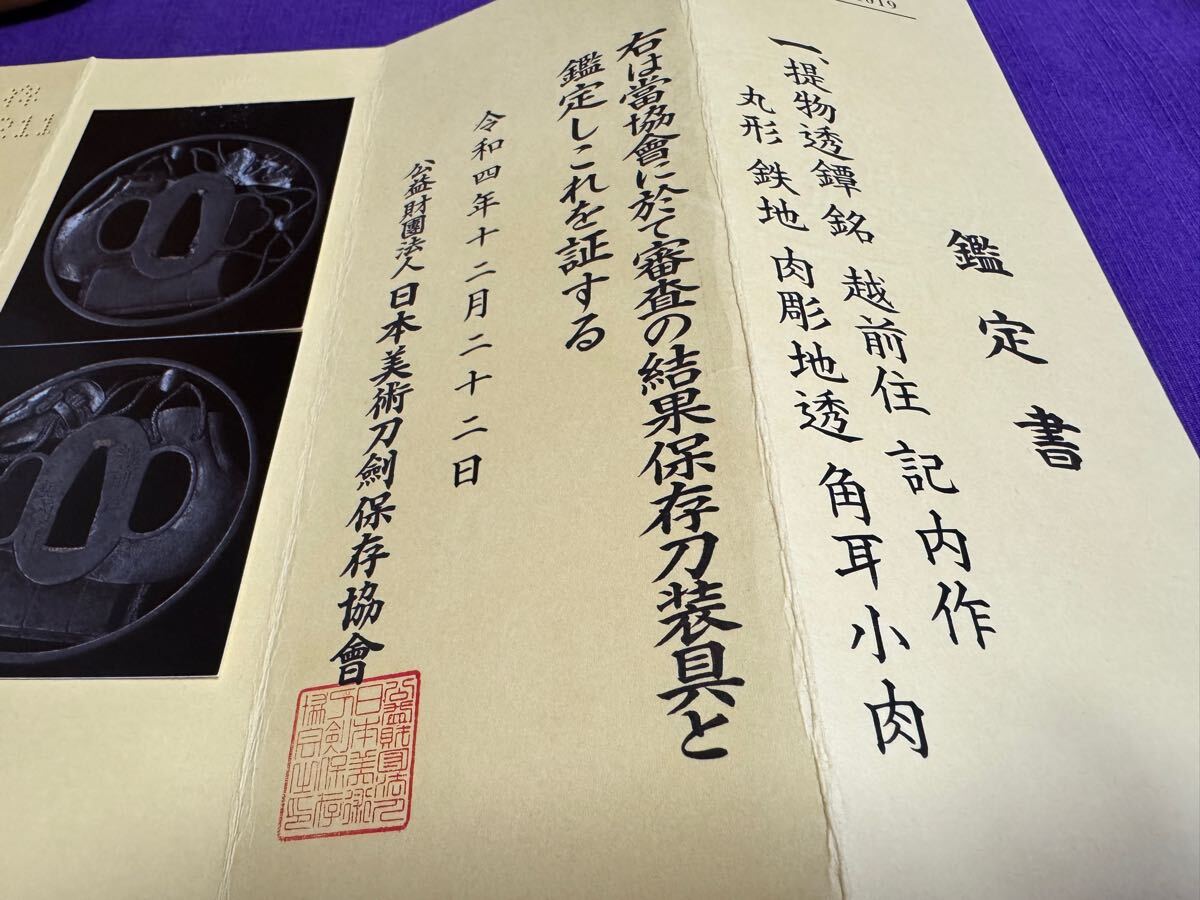 鑑定書
一、提物透鐔 銘 越前住 記内作
丸形 鉄地 肉彫地透 角耳小肉
右は當協會に於て審査の結果保存刀装具と
鑑定しこれを証する
令和四年十二月二十二日
公益財團法人日本美術刀劍保存協會
公益財団法人
日本美術
刀剣保存
協会之印